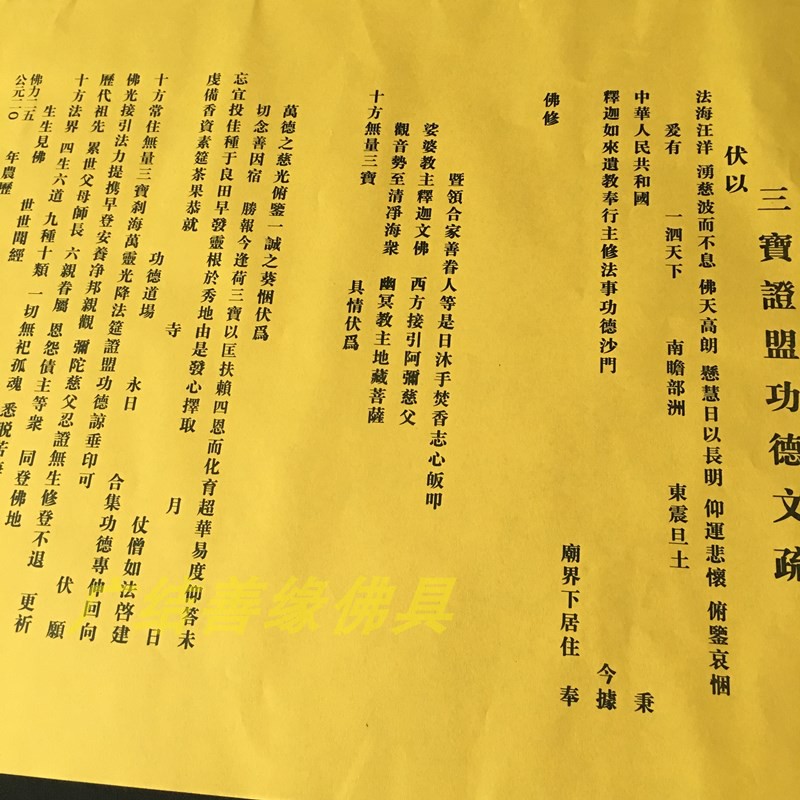 三寶證盟功德文疏
伏以
法海汪洋 湧慈波而不息 佛天高朗 懸慧日以長明 仰運悲懷 俯鑒哀悃
爰有 一泗天下 南瞻部洲 東震旦土
中華人民共和國 秉
釋迦如來遺教奉行主修法事功德沙門 今據
廟界下居住 奉
佛修
暨領合家善眷人等是日沐手焚香志心皈叩
娑婆教主釋迦文佛 西方接引阿彌慈父
觀音勢至清凈海衆 幽冥教主地藏菩薩
十方無量三寶 具情伏爲
萬德之慈光俯鑒一誠之葵悃伏爲
切念善因宿 勝報今逢荷三寶以匡扶賴四恩而化育超華易度仰答未
忘宜投佳種于良田早發靈根於秀地由是發心擇取
虔備香資素筵茶果恭就 寺 月 日
功德道場 永日 仗僧如法啓建
十方常住無量三寶刹海萬靈光降法筵證盟功德諒垂印可 合集功德專伸回向
佛光接引法力提携早登安養净邦親觀 彌陀慈父忍證無生修登不退 伏願
歷代祖先 累世父母師長 六親眷屬 恩怨債主等衆 同登佛地 更祈
十方法界 四生六道 九種十類 一切無祀孤魂 悉脱苦
生生見佛 世世聞經
佛力二五
公元二0 年農歷
广结善缘佛具